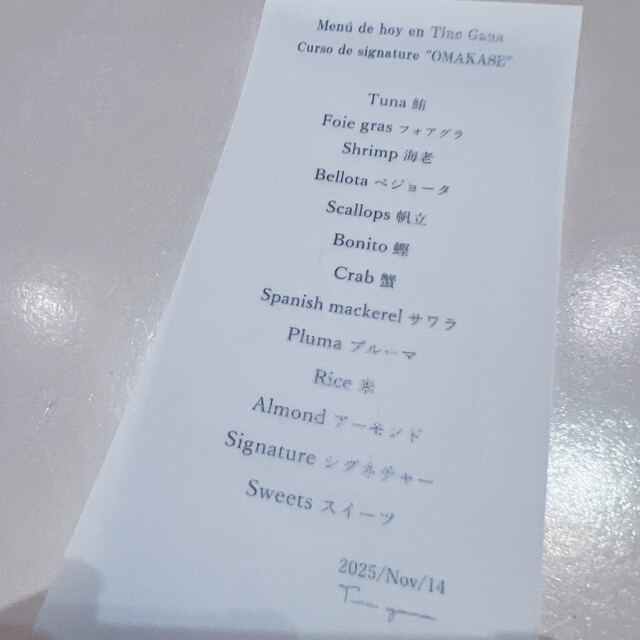 Menú de hoy en Tinc Gana
Curso de signature "OMAKASE"
Tuna 鮪
Foie gras フォアグラ
Shrimp 海老
Bellota ベジョータ
Scallops 帆立
Bonito 鰹
Crab 蟹
Spanish mackerel サワラ
Pluma プルーマ
Rice 米
Almond アーモンド
Signature シグネチャー
Sweets スイーツ
2025/Nov/14
Tinc gana